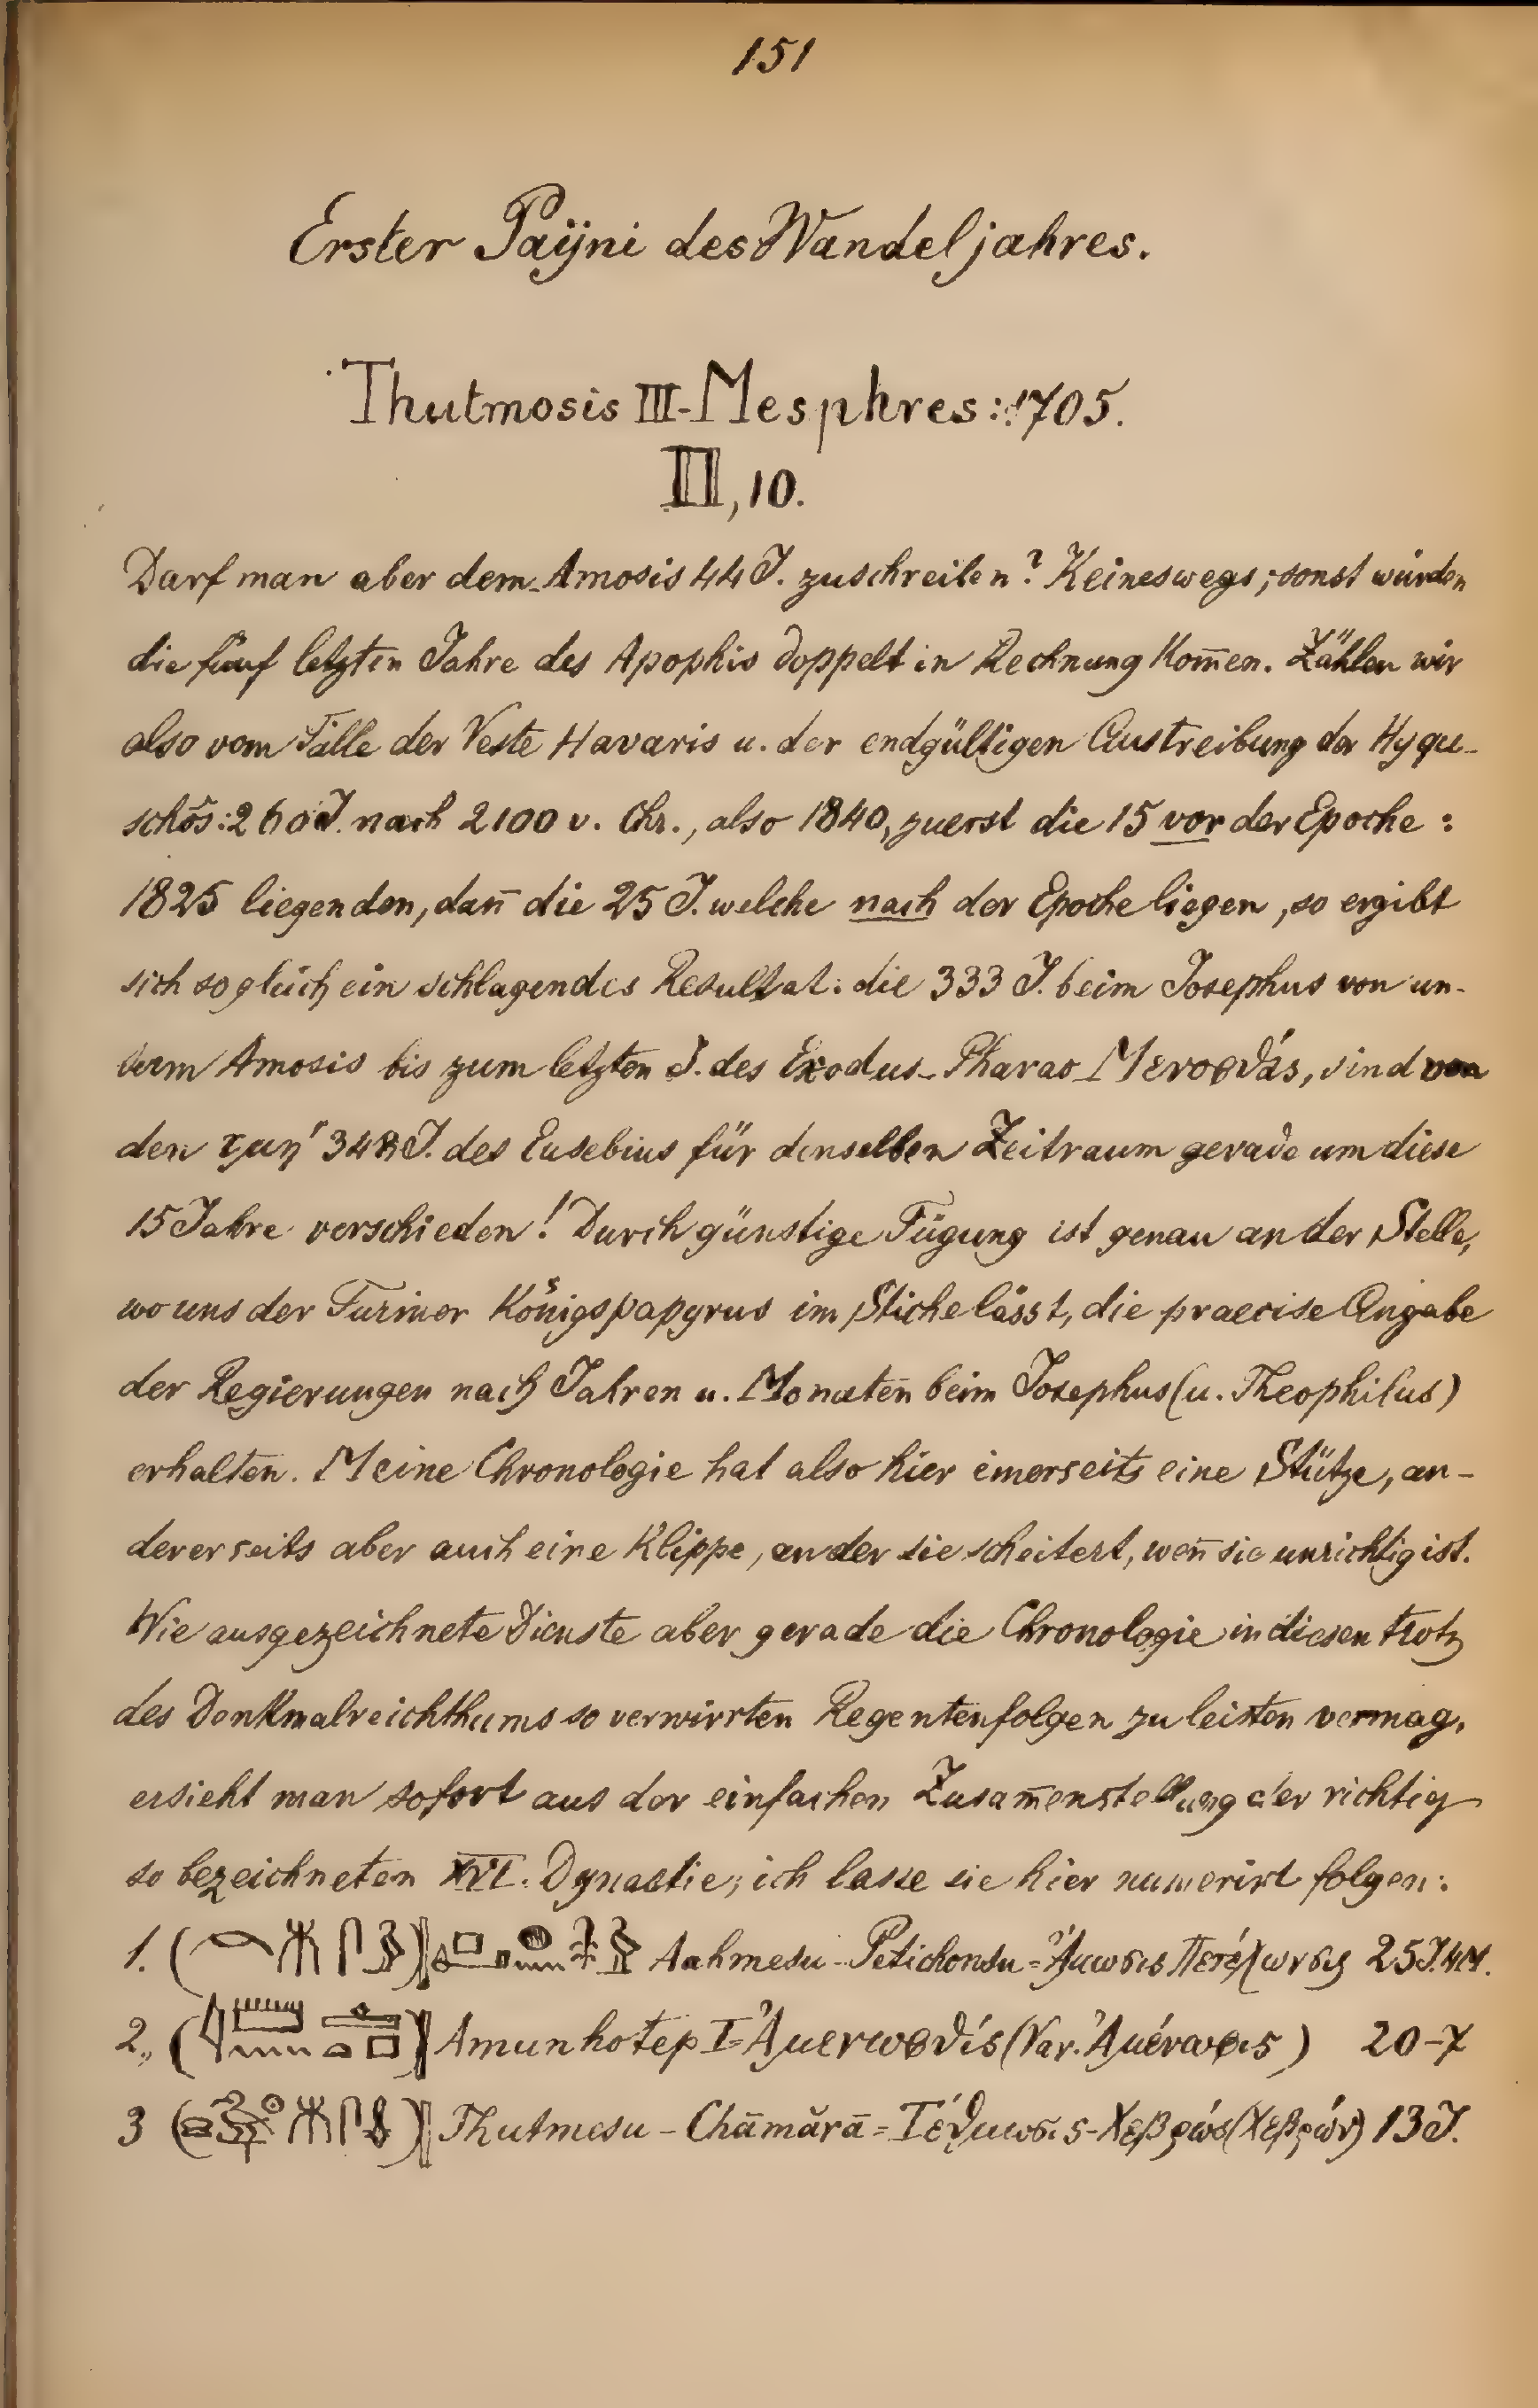 151
Erster Paÿni des Wandeljahres.
Thutmosis III-Mesphres: 1705.
II, 10.
Darf man aber dem Amosis 44 J. zuschreiben? Keineswegs; sonst würden
die fünf letzten Jahre des Apophis doppelt in Rechnung kom̄en. Zählen wir
also vom Falle der Veste Havaris u. der endgültigen Austreibung der Hyqu-
schôs: 260 J. nach 2100 v. Chr., also 1840, zuerst die 15 vor der Epoche:
1825 liegenden, dan̄ die 25 J. welche nach der Epoche liegen, so ergibt
sich sogleich ein schlagendes Resultat: die 333 J. beim Josephus von un-
serm Amosis bis zum letzten J. des Exodus-Pharao Μενοφθάς, sind von
den τμη′ 348 J. des Eusebius für denselben Zeitraum gerade um diese
15 Jahre verschieden! Durch günstige Fügung ist genau an der Stelle,
wo uns der Turiner Königspapyrus im Stiche lässt, die praecise Angabe
der Regierungen nach Jahren u. Monaten beim Josephus (u. Theophilus)
erhalten. Meine Chronologie hat also hier einerseits eine Stütze, an-
dererseits aber auch eine Klippe, an der sie scheitert, wen̄ sie unrichtig ist.
Wie ausgezeichnete Dienste aber gerade die Chronologie in diesen trotz
des Denkmalreichthums so verwirrten Regentenfolgen zu leisten vermag,
ersieht man sofort aus der einfachen Zusam̄enstellung der richtig
so bezeichneten XVI. Dynastie; ich lasse sie hier numerirt folgen:
1. Aahmesu-Petichonsu = Ἄμωσις Πετεχωνσις 25 J. 4 M.
2., Amunhotep I = Ἀμενωφθίς (Var. Ἀμένωφις) 20-7
3 Thutmesu - Chāmărā = Τέθμωσις-Χεβρώς (Χεβρών) 13 J.